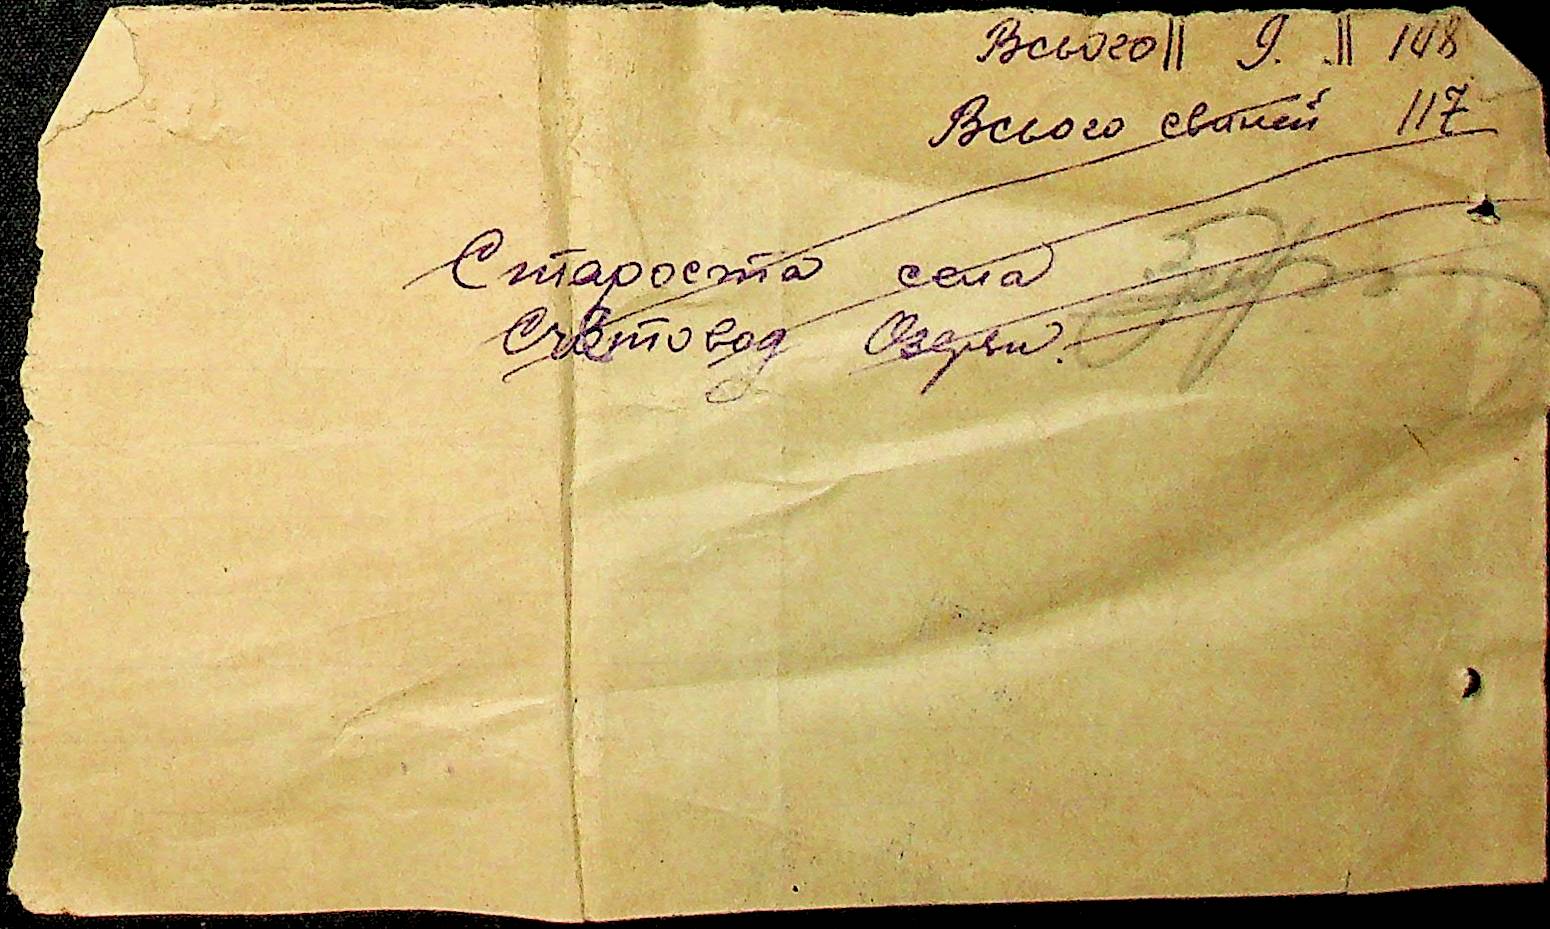 Всього || 9. || 148
Всього свиней 117
Староста села
Счётовод Озеряи.